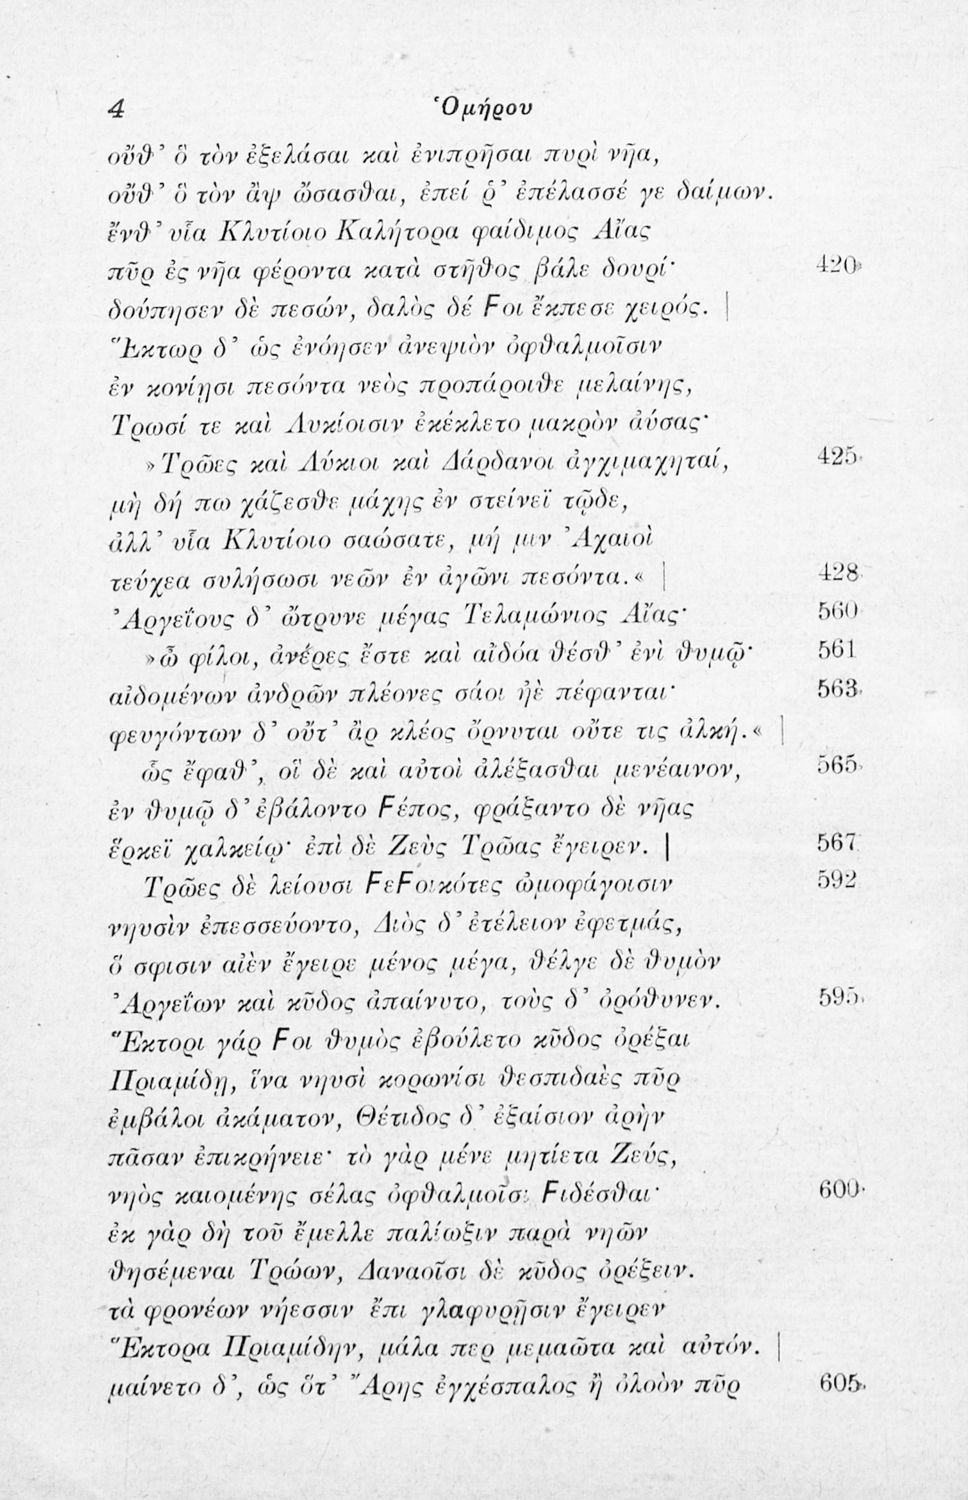 4 Ὁμήρου
οὔθ’ ὃ τὸν ἐξελάσαι καὶ ἐνιπρῆσαι πυρὶ νῆα,
οὔθ’ ὃ τὸν ἂψ ὤσασθαι, ἐπεί ῥ’ ἐπέλασσέ γε δαίμων.
ἔνθ’ υἷα Κλυτίοιο Καλήτορα φαίδιμος Αἴας
πῦρ ἐς νῆα φέροντα κατὰ στῆθος βάλε δουρί· 420
δούπησεν δὲ πεσών, δαλὸς δέ Ϝοι ἔκπεσε χειρός. |
Ἕκτωρ δ’ ὡς ἐνόησεν ἀνεψιὸν ὀφθαλμοῖσιν
ἐν κονίῃσι πεσόντα νεὸς προπάροιθε μελαίνης,
Τρωσί τε καὶ Λυκίοισιν ἐκέκλετο μακρὸν ἀύσας·
»Τρῶες καὶ Λύκιοι καὶ Δάρδανοι ἀγχιμαχηταί, 425
μὴ δή πω χάζεσθε μάχης ἐν στείνεϊ τῷδε,
ἀλλ’ υἷα Κλυτίοιο σαώσατε, μή μιν Ἀχαιοὶ
τεύχεα συλήσωσι νεῶν ἐν ἀγῶνι πεσόντα.« | 428
Ἀργείους δ’ ὤτρυνε μέγας Τελαμώνιος Αἴας· 560
»ὦ φίλοι, ἀνέρες ἔστε καὶ αἰδόα θέσθ’ ἐνὶ θυμῷ· 561
αἰδομένων ἀνδρῶν πλέονες σάοι ἠὲ πέφανται· 563
φευγόντων δ’ οὔτ’ ἂρ κλέος ὄρνυται οὔτε τις ἀλκή.« |
ὣς ἔφαθ’, οἳ δὲ καὶ αὐτοὶ ἀλέξασθαι μενέαινον, 565
ἐν θυμῷ δ’ ἐβάλοντο Ϝέπος, φράξαντο δὲ νῆας
ἕρκεϊ χαλκείῳ· ἐπὶ δὲ Ζεὺς Τρῶας ἔγειρεν. | 567
Τρῶες δὲ λείουσι ϜεϜοικότες ὠμοφάγοισιν 592
νηυσὶν ἐπεσσεύοντο, Διὸς δ’ ἐτέλειον ἐφετμάς,
ὅ σφισιν αἰὲν ἔγειρε μένος μέγα, θέλγε δὲ θυμὸν
Ἀργεΐων καὶ κῦδος ἀπαίνυτο, τοὺς δ’ ὀρόθυνεν. 595
Ἕκτορι γάρ Ϝοι θυμὸς ἐβούλετο κῦδος ὀρέξαι
Πριαμίδῃ, ἵνα νηυσὶ κορωνίσι θεσπιδαὲς πῦρ
ἐμβάλοι ἀκάματον, Θέτιδος δ’ ἐξαίσιον ἀρὴν
πᾶσαν ἐπικρήνειε· τὸ γὰρ μένε μητίετα Ζεύς,
νηὸς καιομένης σέλας ὀφθαλμοῖσι Ϝιδέσθαι· 600
ἐκ γὰρ δὴ τοῦ ἔμελλε παλίωξιν παρὰ νηῶν
θησέμεναι Τρώων, Δαναοῖσι δὲ κῦδος ὀρέξειν.
τὰ φρονέων νήεσσιν ἔπι γλαφυρῇσιν ἔγειρεν
Ἕκτορα Πριαμίδην, μάλα περ μεμαῶτα καὶ αὐτόν. |
μαίνετο δ’, ὡς ὅτ’ Ἄρης ἐγχέσπαλος ἢ ὀλοὸν πῦρ 605